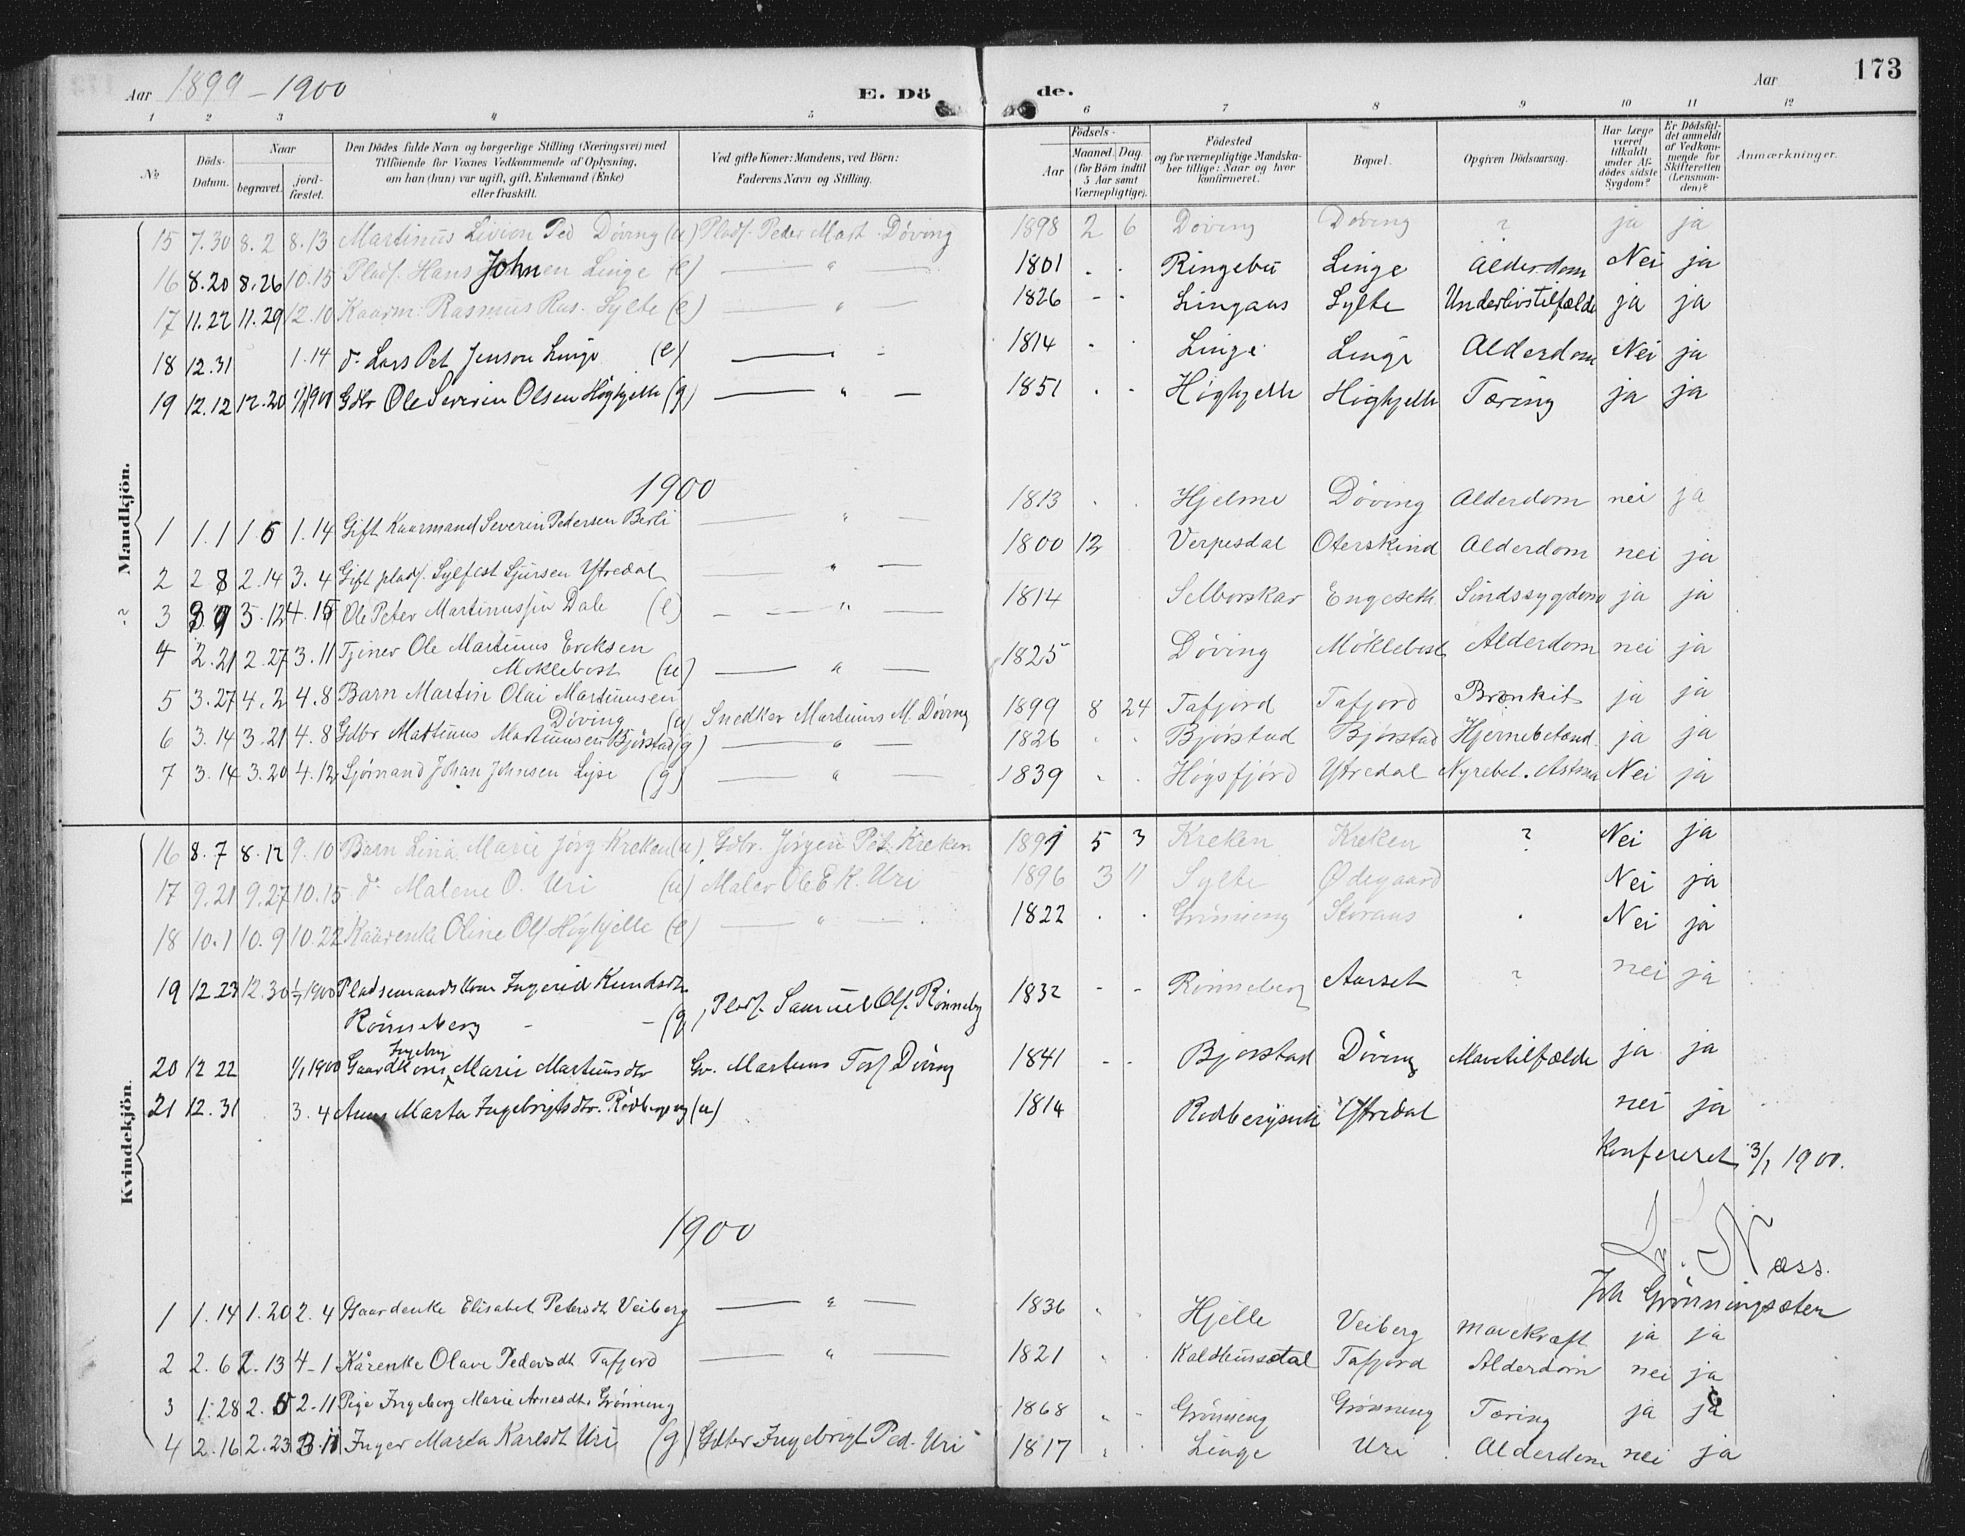 Aar 1899 - 1900 E. Dö de. Aar 173
1 2 3 4 5 6 7 8 9 10 11 12
No Döds-Datum. Naar begravet. jordfæstet. Den Dödes fulde Navn og borgerlige Stilling (Næringsvei) med Tilföiende for Voxnes Vedkommende af Oplysning, om han (hun) var ugift, gift, Enkemand (Enke) eller fraskilt. Ved gifte Koner: Mandens, ved Börn: Faderens Navn og Stilling. Födsels- Aar Maaned. Dag (for Börn indtil 5 Aar samt Værnepligtige). Födested og for værnepligtige Mandskaber tillige: Naar og hvor konfirmeret. Bopæl. Opgiven Dödsaarsag. Har Læge været tilkaldt under Afdödes sidste Sygdom? Er Dödsfaldet anmeldt af Vedkommende for Skifteretten (Lensmanden)? Anmærkninger.
Mandkjön.
15 7.30 8.2 8.13 Martinus Ped Døving (u) Plads. Peder Mart. Døving 1898 2 6 Døving Døving ? ja ja
16 8.20 8.26 10.15 Plads. Hans Johnsen Linge (e) — " — 1801 . . Ringebu Linge Alderdom Nei ja
17 11.22 11.29 12.10 Kaarm. Rasmus Ras. Sylte (e) — " — 1826 - - Lingaas Sylte Underlivstilfælde ja ja
18 12.31 1.14 do Lars Pet Jenson Linge (e) — " — 1814 . . Linge Linge Alderdom Nei ja
19 12.12 12.20 1/1 1900 Gdbr Ole Severin Olsen Høghjelle (g) — " — 1851 . . Høghjelle Høghjelle Tæring ja ja
1900
1 1.1 1.6 1.14 Gift Kaarmand Severin Pedersen Berli — " — 1813 . . Hjelme Døving Alderdom nei ja
2 2 8 2.14 3.4 Gift plads. Sylfest Sjursen Yttredal — " — 1800 12 Verpesdal Oterskind Alderdom nei ja
3 3.9 3.12 4.15 Ole Peter Martinussen Dale (e) — " — 1814 Selboskar Engeseth Sindssygdom ja ja
4 2.21 2.27 3.11 Tjener Ole Martinus Ereksen
Møklebost (u) — " — 1825 Døving Møklebost Alderdom nei ja
5 3.27 4.2 4.8 Barn Martin Olai Martinusen
Døving (u) Snedker Martinus M. Døving 1899 8 24 Tafjord Tafjord Bronkit ja ja
6 3.14 3.21 4.8 Gdbr Martinus Martinusen Bjørstad (g) — " — 1826 . . Bjørstad Bjørstad Hjernebetænd. ja ja
7 3.14 3.20 4.12 Sjømand Johan Johnsen Lyse (g) — " 1839 . . Høgsfjord Yttredal Nyrebet. Astma Nei ja
Kvindekjön.
16 8.7 8.12 9.10 Barn Lina Marie Jørg Kreken (u) Gdbr. Jørgen Pet. Kreken 1891 5 3 Kreken Kreken ? Nei ja
17 9.21 9.27 10.15 do Malene O. Uri (u) Maler Ole E K. Uri 1896 3 11 Sylte Ødegaard Nei ja
18 10.1 10.9 10.22 Kaarenke Oline Ols Høghjelle (e) — " — 1822 . . Grønning Storaas . Nei ja
19 12.23 12.30 1/1 1900 Pladsemandskone Ingerid Knudsdtr
Rønneberg - - (g) Plads. Samuel Ols. Rønneberg 1832 - - Rønneberg Aarset ? nei ja
20 12 22 1/1 1900 Gaardkone Ingebrg Marie Martinusdtr Gr. Martinus Tors Døving 1841 - - Bjørstad Døving Mavetilfælde ja ja
21 12.31 3.4 Anne Marta Ingebrigtsdtr. Rødbergvig (u) 1814 Rødbergvik Yttredal nei ja
Konfereret 3/1 1900.
Næss.
1900
Joh Grönningsæter
1 1.14 1.20 2.4 Gaardenke Elisabet Petersdt Veiberg — " — 1836 . . Hjelle Veiberg Mavekræft ja ja
2 2.6 2.13 4-1 Kårenke Olave Pedersdt Tafjord — " — 1821 . . Kaldhussætal Tafjord Alderdom nei ja
3 1.28 2.5 2-11 Pige Ingeborg Marie Arnesdt. Grønning 1868 . . Grønning Grønning Tæring ja ja
4 2.16 2.23 3.11 Inger Marta Karlsdt Uri (g) Gdbr Ingebrigt Ped. Uri 1817 . . Linge Uri . Alderdom nei ja